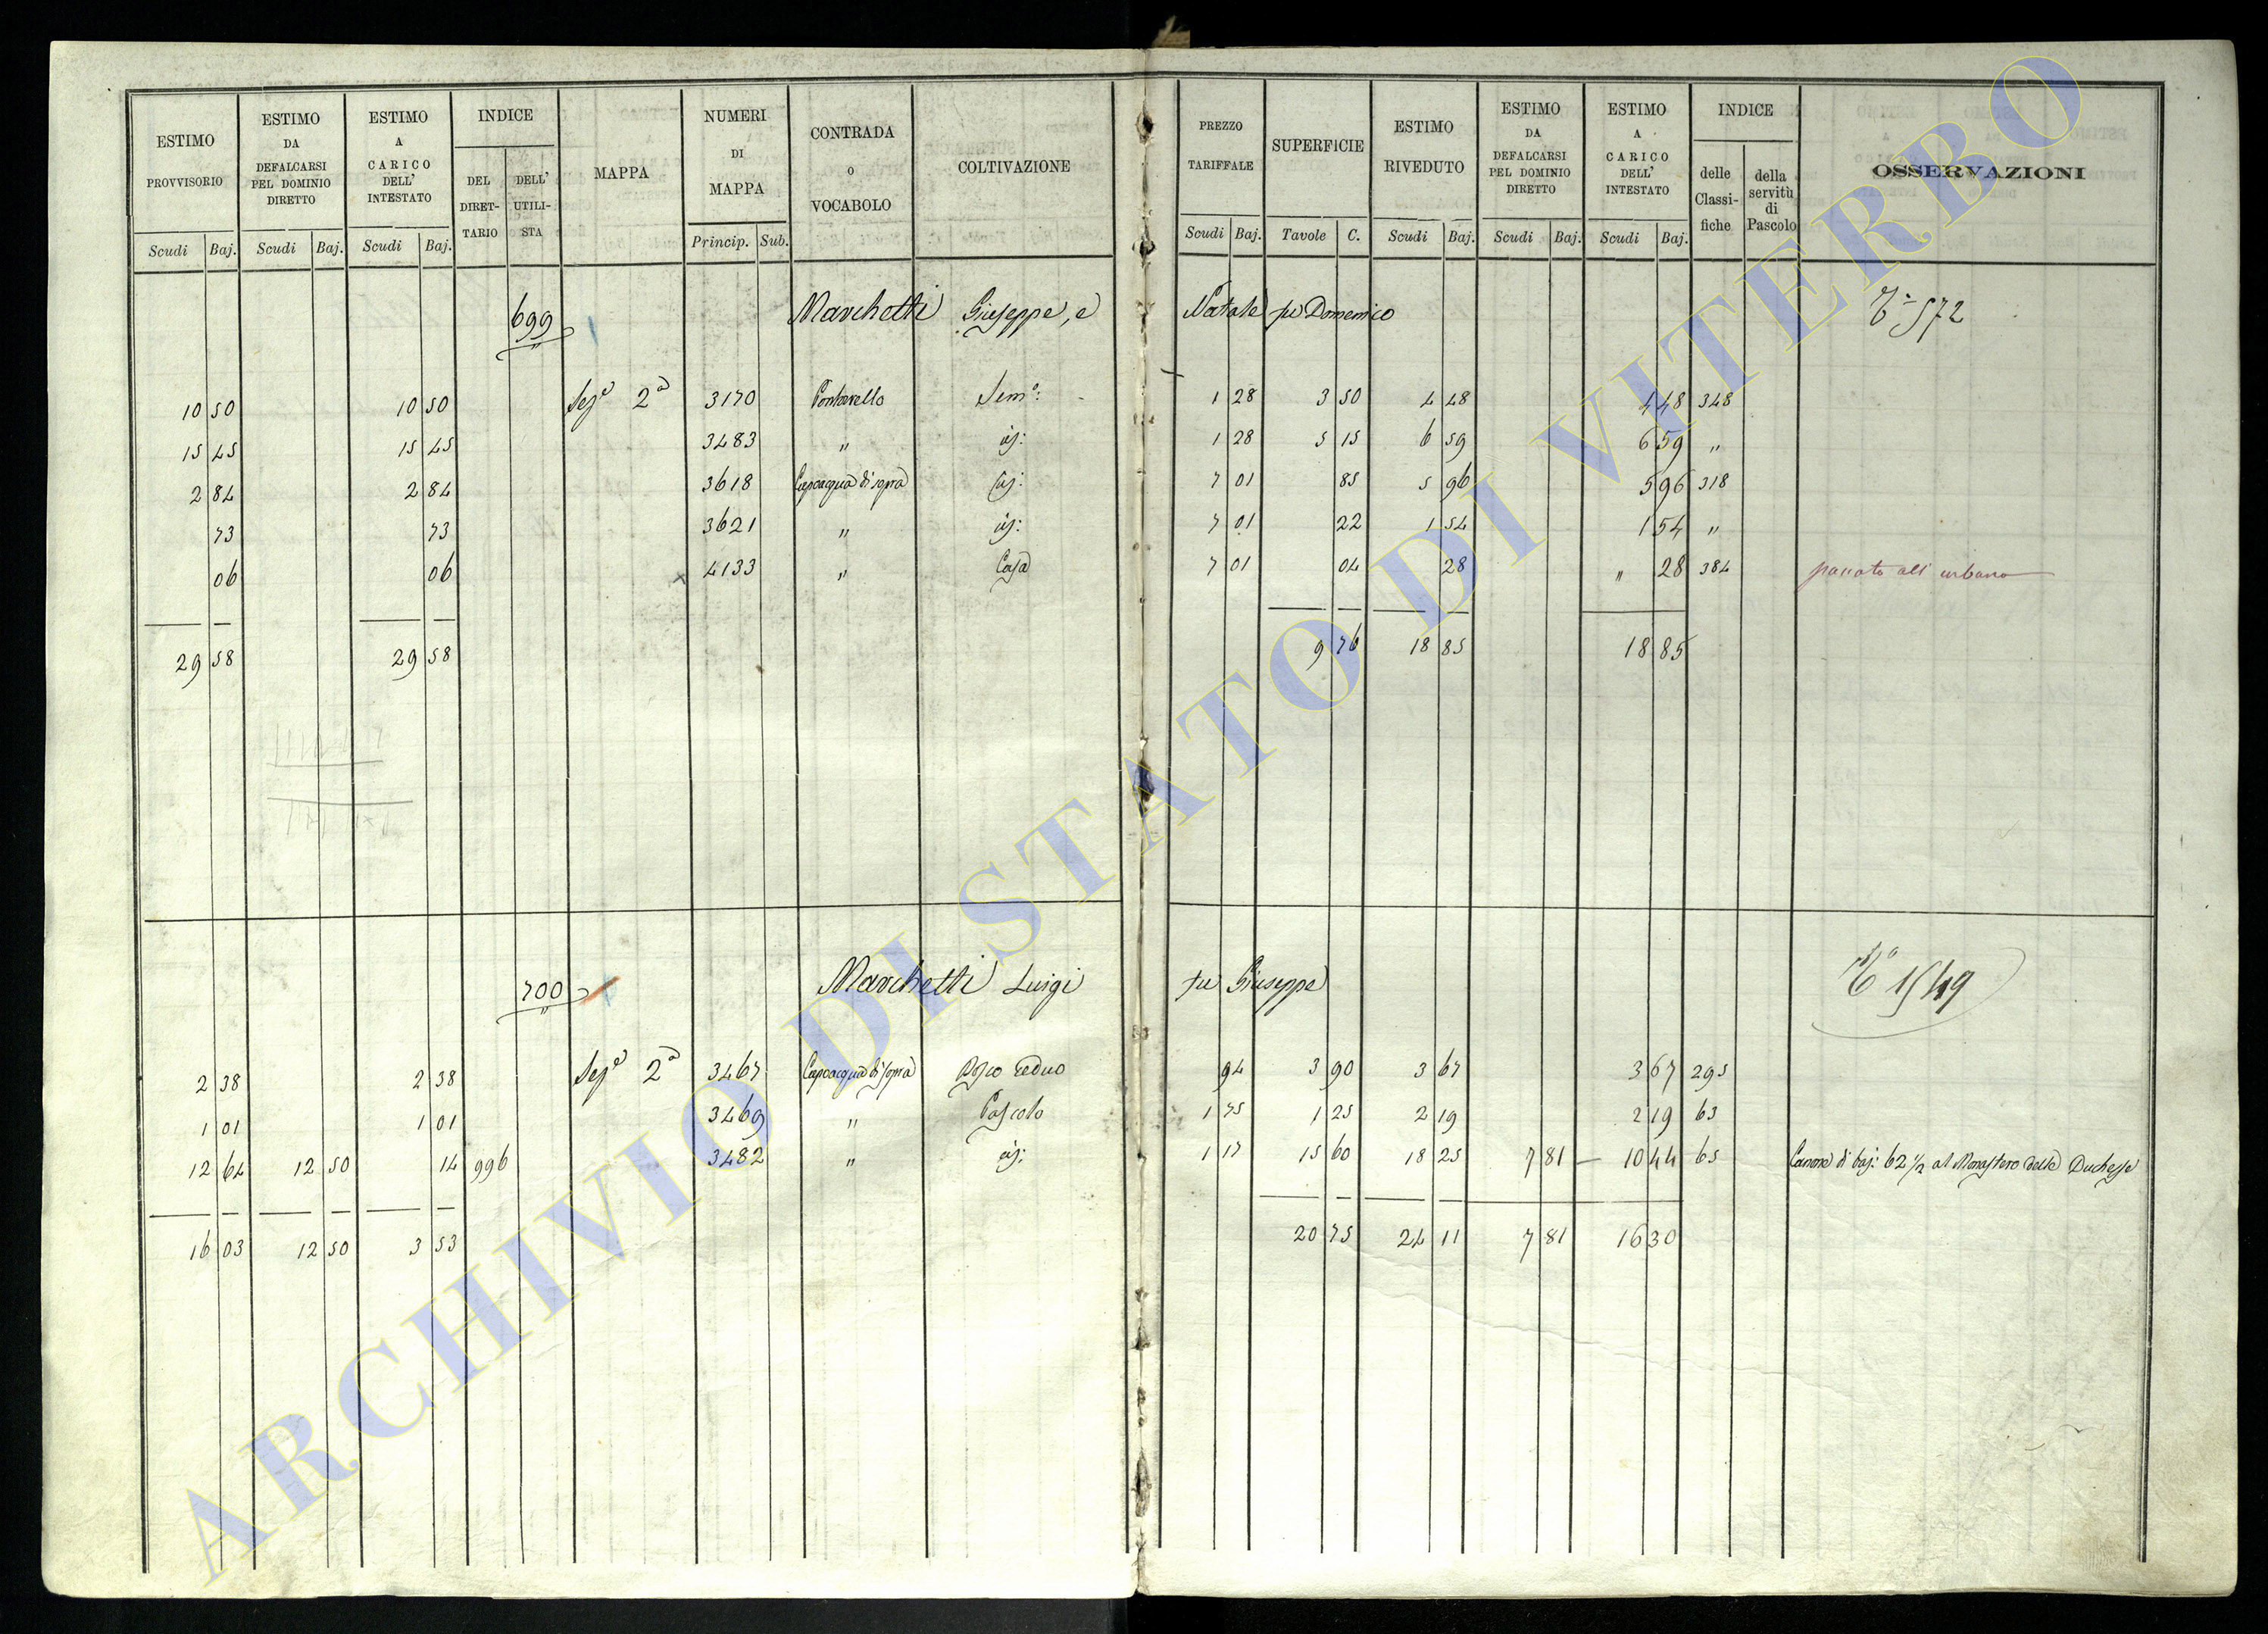 ESTIMO PROVVISORIO Scudi Baj. ESTIMO DA DEFALCARSI PEL DOMINIO DIRETTO Scudi Baj. ESTIMO A CARICO DELL' INTESTATO Scudi Baj. INDICE DEL DIRET-TARIO DELL' UTILI-STA MAPPA NUMERI DI MAPPA Princip. Sub. CONTRADA O VOCABOLO COLTIVAZIONE PREZZO TARIFFALE Scudi Baj. SUPERFICIE Tavole C. ESTIMO RIVEDUTO Scudi Baj. ESTIMO DA DEFALCARSI PEL DOMINIO DIRETTO Scudi Baj. ESTIMO A CARICO DELL' INTESTATO Scudi Baj. INDICE delle Classi-fiche della servitù di Pascolo OSSERVAZIONI
699 Marchetti Giuseppe, e Natale fu Domenico 572
10 50 10 50 Sezᵉ 2ª 3170 Sem: 1 28 3 50 4 48 4 48 348
15 45 15 45 3483 " id: 1 28 5 15 6 59 6 59 "
2 84 2 84 3618 Capoacqua di sopra id: 7 01 85 5 96 5 96 318
73 73 3621 " id: 7 01 22 1 54 1 54 "
06 06 4133 " Casa 7 01 04 28 " 28 384 passato all' urbano
29 58 29 58 9 76 18 85 18 85
700 Marchetti Luigi fu Giuseppe 1549
2 38 2 38 Sezᵉ 2ª 3467 Capoacqua di sopra Bosco ceduo 94 3 90 3 67 3 67 295
1 01 1 01 3469 " Pascolo 1 75 1 25 2 19 2 19 63
12 64 12 50 14 996 3482 " id: 1 17 15 60 18 25 7 81 10 44 65 Canone di baj: 62 ½ al Monastero delle Duchesse
16 03 12 50 3 53 20 75 24 11 7 81 16 30
ARCHIVIO DI STATO DI VITERBO